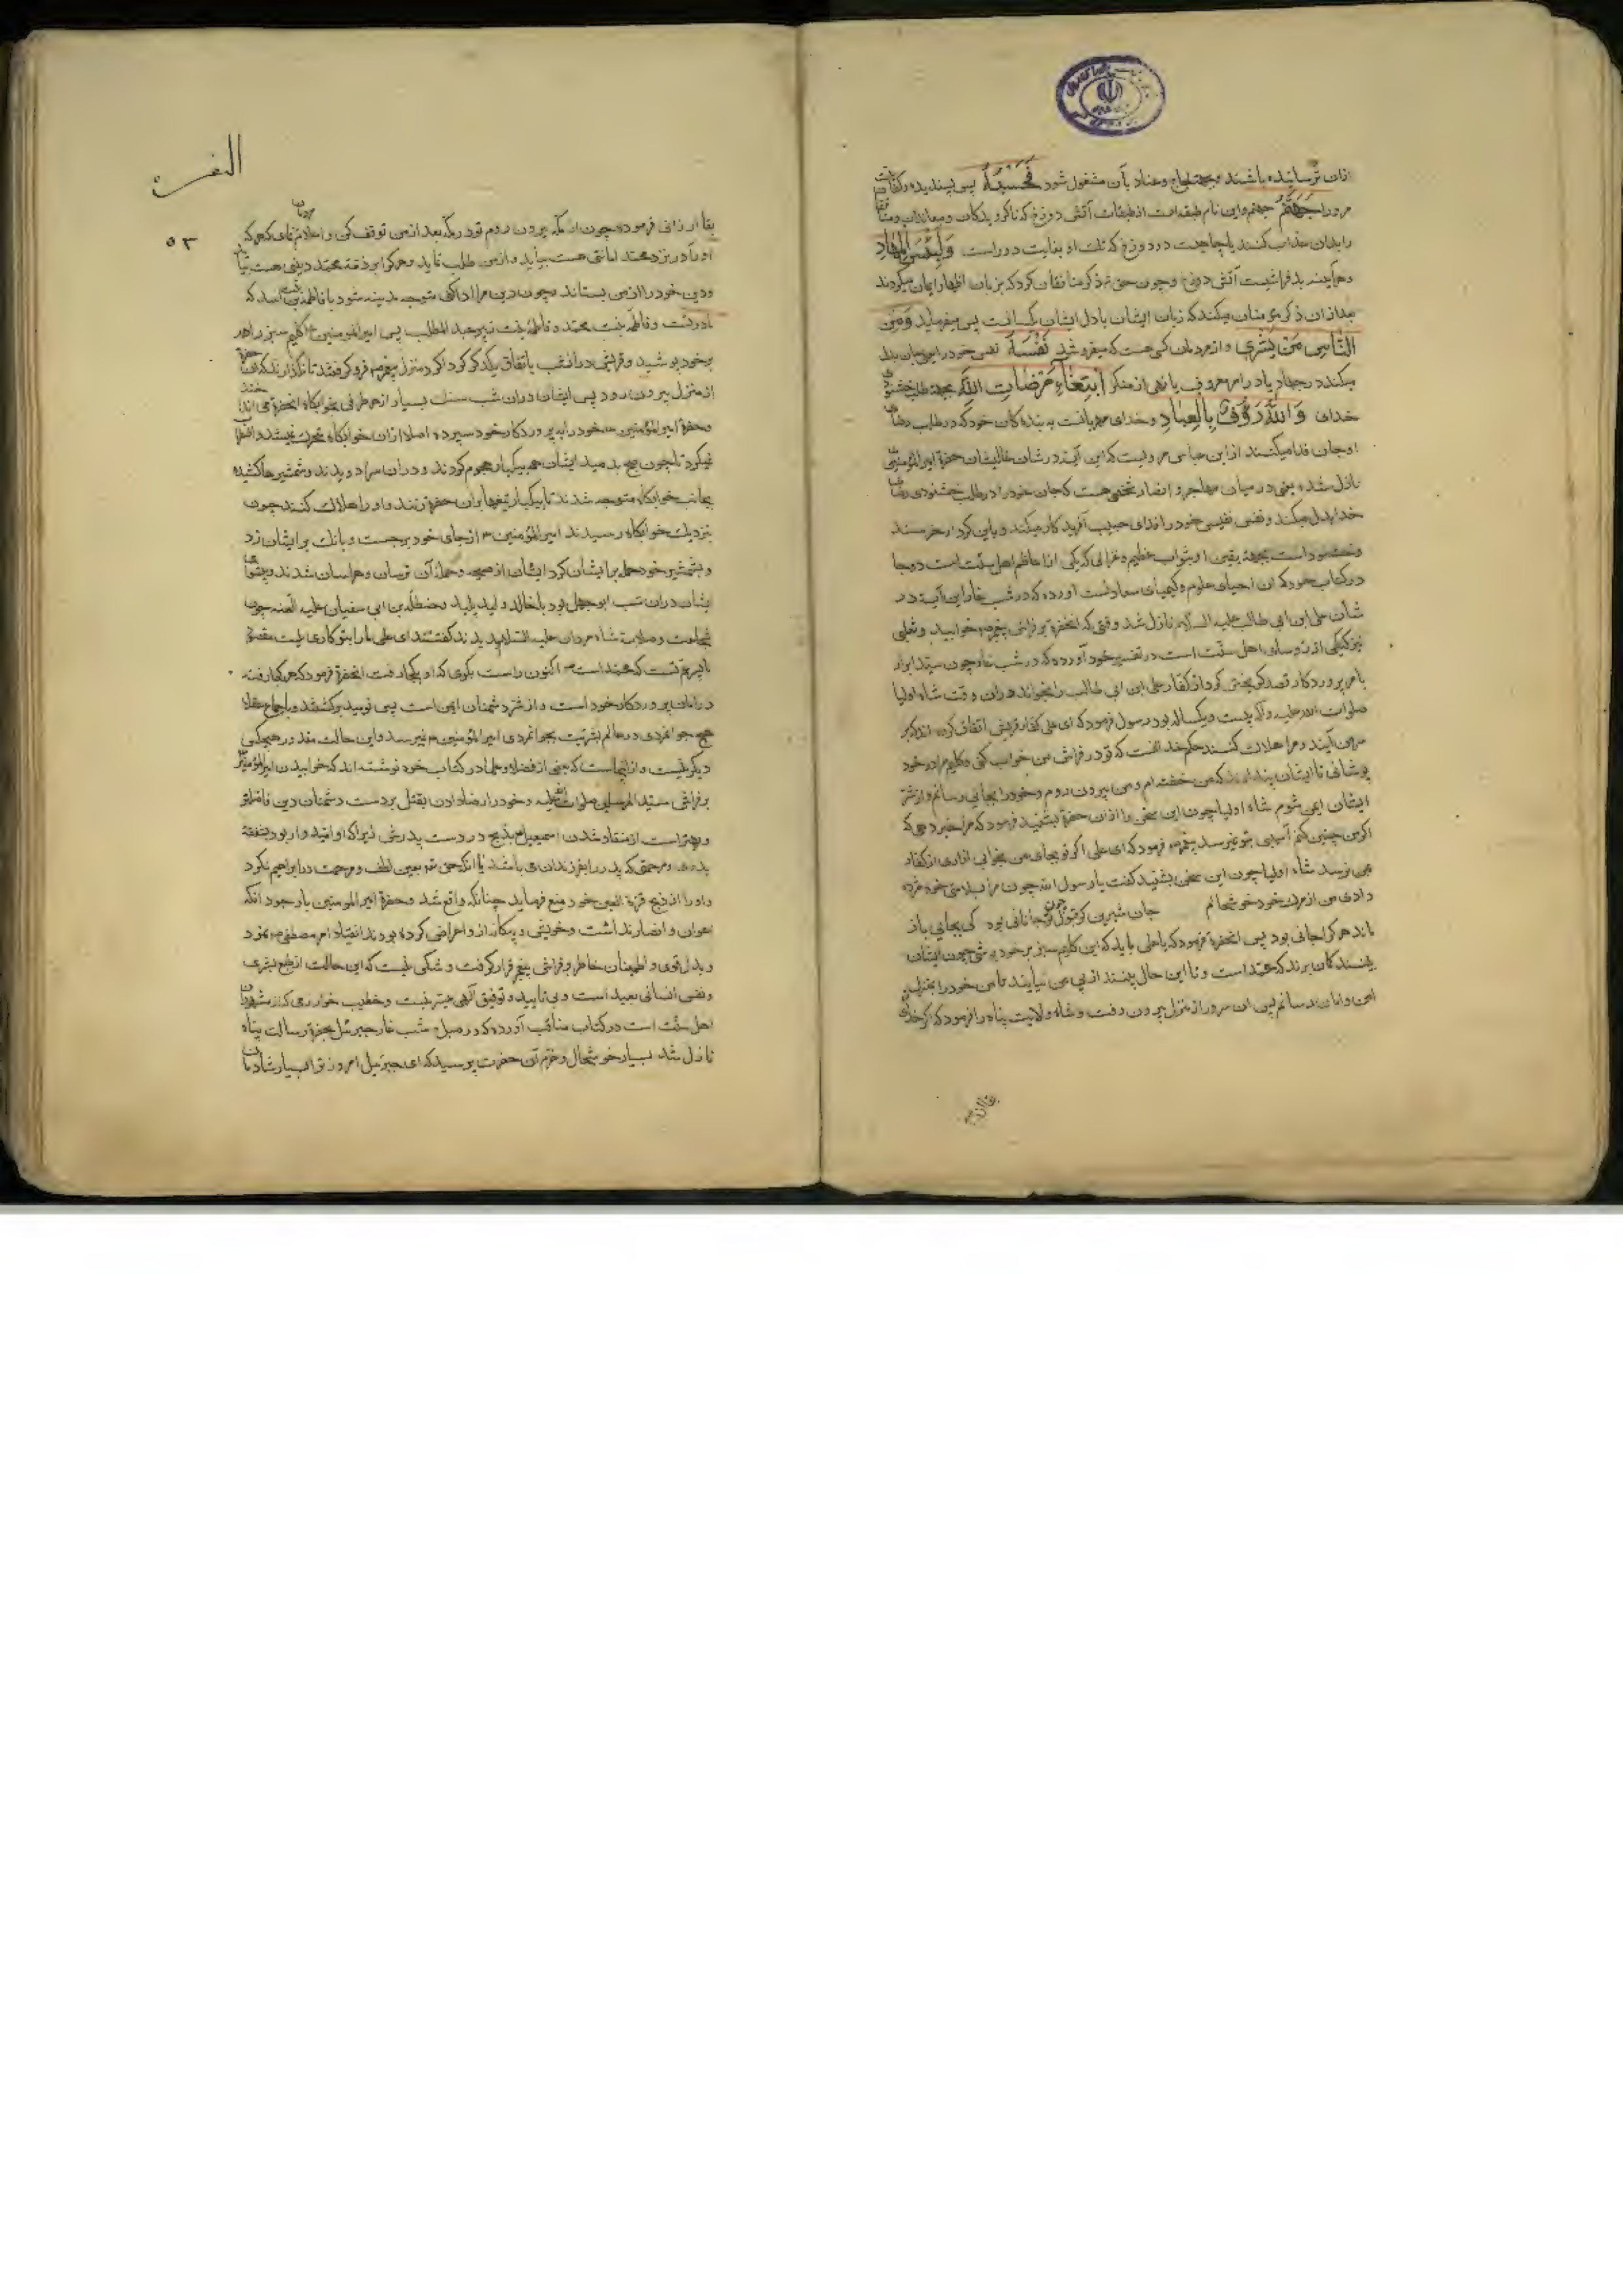 ازان ترسانیده باشند بجهة لجاج وعناد بآن مشغول شود فَحَسْبُهُ پس بسندیده وکفایت
مر او را جَهَنَّمُ جهنم واین نام طبقه است از طبقات آتش دوزخ که ناکرویدکان ومعاندان
را بدان عذاب کنند یا چاهیست در دوزخ که تک او بغایت دور است وَلَبِئْسَ الْمِهَادُ
وهرآینه بد فراشیست آتش دوزخ وچون حق تع ذکر منافقان کرد که بزبان اظهار ایمان میکردند
بعد ازان ذکر مؤمنان میکند که زبان ایشان با دل ایشان یکسانست پس میفرماید وَمِنَ
النَّاسِ مَنْ یَشْرِی واز مردمان کسی هست که میفروشد نَفْسَهُ نفس خود را یعنی جان بذل
میکند در جهاد یا در امر معروف یا نهی از منکر ابْتِغَاءَ مَرْضَاتِ اللَّهِ بجهة طلب خشنودی
خدای وَاللَّهُ رَؤُفٌ بِالْعِبَادِ وخدای مهربانست به بندکان خود که در طلب رضای
او جان فدا میکنند از ابن عباس مرویست که این آیت در شان عالیشان حضرة امیر المؤمنین
نازل شده یعنی در میان مهاجر و انصار شخصی هست که جان خود را در طلب خشنودی
خدا بذل میکند ونفس نفیس خود را فدای حبیب آفریدکار میکند وباین کردار خرسند
وخشنود است بجهة یقین او بثواب عظیم وغزالی که یکی از اعاظم اهل سنّت است در
در کتاب خود که آن احیای علوم وکیمیای سعادتست آورده که در شب غار این آیت در
شان علی ابن ابی طالب علیه السلام نازل شد وقتی که انحضرة بر فراش پیغمبر خوابید وثعلبی
نیز که یکی از رؤسای اهل سنّت است در تفسیر خود آورده که در شب غار چون سید ابرار
بامر پروردکار قصد کریختن کرد از کفار علی ابن ابی طالب را بخواند دران وقت شاه اولیا
صلوات الله علیه وآله بیست ویکساله بود رسول فرمود که ای علی کفار قریش اتفاق کرده اند که بر
سر من آیند ومرا هلاک کنند حکم خدا انست که تو در فراش من خواب کنی وکلیم مرا در خود
پوشانی تا ایشان پندارند که من خفته ام ومن بیرون روم وخود را بجایی رسانم واز شر
ایشان ایمن شوم شاه اولیا چون این سخن را ازان حضرة بشنید فرمود که مرا خبر دهی که
اکر من چنین کنم آسیبی بتو نمیرسد پیغمبر فرمود که ای علی اکر تو بجای من بخوابی ازاری از کفار
بمن نرسد شاه اولیا چون این سخن بشنید کفت یا رسول الله چون مرا بسلامتی خود مژده
دادی من از مرک خود خوشحالم جان شیرین کر قبول چون جانانی بود کی بجایی باز
ماند هر کرا جانی بود پس انحضرة فرمود که یا علی باید که این کلیم سبز بر خود پوشی چون ایشان
بینند کمان برند که محمّد است وتا این حال بینند از پی من نیایند تا من خود را بمنزل
امن وامان رسانم پس ان سرور از منزل بیرون رفت وشاه ولایت پناه را فرمود که اکر خدای
البقرة
٥٣
بقا ارزانی فرموده چون از مکه بیرون روم تو در مکه بعد از من توقف کن واعلام نمای که هر که
او را در نزد محمّد امانتی هست بیاید واز من طلب نماید وهر کرا بر ذمّه محمّد دینی هست بیاید
ودین خود را از من بستاند وچون دین مرا ادا کنی متوجه مدینه شو وبا فاطمه بنت اسد که
مادر تست وفاطمه بنت محمّد وفاطمه بنت زبیر عبد المطلب پس امیر المؤمنین ع کلیم سبز را در
بر خود پوشید وقریش دران شب باتفاق یکدیکر کرداکرد منزل پیغمبر فرو کرفتند تا نکذارند که
از منزل بیرون رود پس ایشان دران شب سنک بسیار از هر طرفی بخوابکاه انحضرة می انداختند
وحضرة امیر المؤمنین خود را به پروردکار خود سپرده اصلا ازان خوابکاه متحرک نمیشد واضطراب
نمیکرد تا چون صبح بدمید ایشان همه بیکبار هجوم کردند ودران سرا دویدند وشمشیرها کشیده
بجانب خوابکاه متوجه شدند تا بیکبار تیغها بران حضرة زنند واو را هلاک کنند چون
بنزدیک خوابکاه رسیدند امیر المؤمنین ع از جای خود برجست وبانک بر ایشان زد
وبشمشیر خود حمله بر ایشان کرد ایشان از صیحه وحمله آن ترسان وهراسان شدند وپیشوای
ایشان دران شب ابو جهل بود با خالد ولید پلید وحنظلة بن ابی سفیان علیه اللعنه چون
شجاعت وصلابت شاه مردان علیه السلام بدیدند کفتند ای علی ما را با تو کاری نیست مقصود
ما پسر عمّ تست که محمّد است اکنون راست بکوی که او بکجا رفت انحضرة فرمود که هر کجا رفته
در امان پروردکار خود است واز شر دشمنان ایمن است پس نومید برکشتند وباجماع عقلا
هیچ جوانمردی در عالم بشریت بجوانمردی امیر المؤمنین ع نمیرسد واین حالت مقدور هیچکس
دیکر نیست واز اینجاست که بعضی از فضلا وعلما در کتاب خود نوشته اند که خوابیدن امیر المؤمنین
بر فراش سید المرسلین صلوات الله علیه وخود را رضا دادن بقتل بر دست دشمنان دین
وبهتر است از منقاد شدن اسمعیل بذبح در دست پدرش زیرا که او امیدوار بود بشفقة
پدری ومرحمتی که پدر را بفرزندان می باشد یا انکه حق تع بعین لطف ومرحمت در ابراهیم نکرد
واو را از ذبح قرّة العین خود منع فرماید چنانکه واقع شد وحضرة امیر المؤمنین با وجود انکه
اعوان وانصار نداشت وخویش وبیکانه ازو اعراض کرده بودند انقیاد امر مصطفی نمود
وبدل قوی واطمینان خاطر بر فراش پیغمبر قرار کرفت وشکی نیست که این حالت از طبع بشری
ونفس انسانی بعید است وبی تایید وتوفیق الهی میسر نیست وخطیب خوارزمی که از مشهوران
اهل سنّت است در کتاب مناقب آورده که در صباح شب غار جبرئیل بحضرة رسالت پناه
نازل شد بسیار خوشحال وخرّم آن حضرت پرسید که ای جبرئیل امروز ترا بسیار شادمان